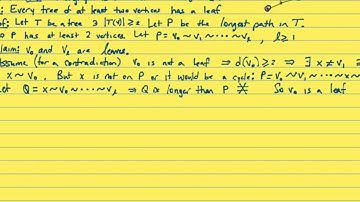 : Every tree of at least two vertices has a leaf
of: Let T be a tree ∋ |T(V)| ≥ 2 Let P be the longest path in T.
o P has at least 2 vertices. Let P = v₀ ~ v₁ ~ ⋯ ~ vₗ , l ≥ 1
laim: v₀ and vₗ are leaves.
ssume (for a contradiction) v₀ is not a leaf ⇒ d(v₀) ≥ 2 ⇒ ∃ x ≠ v₁ ∋
x ~ v₀. But x is not on P or it would be a cycle: P = v₀ ~ v₁ ~ ⋯ ~ x ~
et Q = x ~ v₀ ~ ⋯ ~ vₗ ⇒ Q is longer than P So v₀ is a leaf